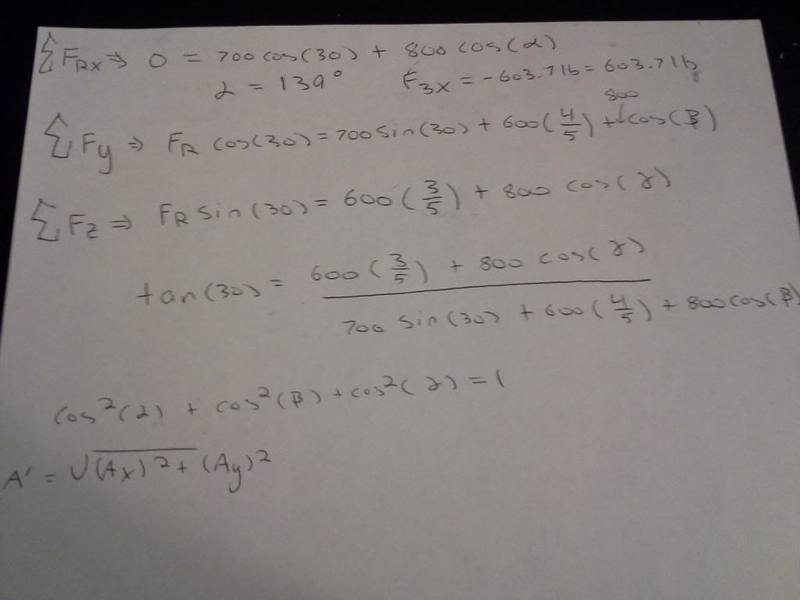 Σ F_Rx ⇒ 0 = 700 cos(30) + 800 cos(α)
α = 139° F_3x = -603.7 lb = 603.7 lb
Σ Fy ⇒ F_R cos(30) = 700 sin(30) + 600 (4/5) + 800 cos(β)
Σ F_z ⇒ F_R sin(30) = 600 (3/5) + 800 cos(γ)
tan(30) = 600 (3/5) + 800 cos(γ) / 700 sin(30) + 600 (4/5) + 800 cos(β)
cos²(α) + cos²(β) + cos²(γ) = 1
A' = √(Ax)² + (Ay)²